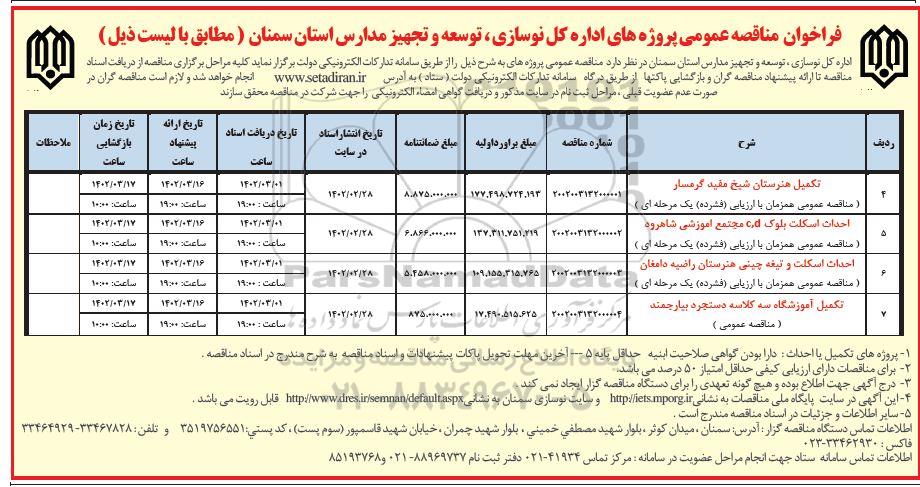 فراخوان مناقصه عمومی پروژه های اداره کل نوسازی ، توسعه و تجهیز مدارس استان سمنان ( مطابق با لیست ذیل )
اداره کل نوسازی ، توسعه و تجهیز مدارس استان سمنان در نظر دارد مناقصه عمومی پروژه های به شرح ذیل را از طریق سامانه تدارکات الکترونیکی دولت برگزار نماید کلیه مراحل برگزاری مناقصه از دریافت اسناد
مناقصه تا ارائه پیشنهاد مناقصه گران و بازگشایی پاکتها از طریق درگاه سامانه تدارکات الکترونیکی دولت ( ستاد ) به آدرس www.setadiran.ir انجام خواهد شد و لازم است مناقصه گران در
صورت عدم عضویت قبلی ، مراحل ثبت نام در سایت مذکور و دریافت گواهی امضاء الکترونیکی را جهت شرکت در مناقصه محقق سازند
ردیف شرح شماره مناقصه مبلغ برآورد اولیه مبلغ ضمانتنامه تاریخ انتشار اسناد در سایت تاریخ دریافت اسناد ساعت تاریخ ارائه پیشنهاد ساعت تاریخ زمان بازگشایی ساعت ملاحظات
۴ تکمیل هنرستان شیخ مفید گرمسار ۲۰۰۲۰۰۳۱۳۲۰۰۰۰۰۱ ۱۷۷.۴۹۸.۷۲۴.۱۹۳ ۸.۸۷۵.۰۰۰.۰۰۰ ۱۴۰۲/۰۲/۲۸ ۱۴۰۲/۰۳/۰۱ ۱۴۰۲/۰۳/۱۶ ۱۴۰۲/۰۳/۱۷
( مناقصه عمومی همزمان با ارزیابی (فشرده) یک مرحله ای ) ساعت : ۱۹:۰۰ ساعت: ۱۹:۰۰ ساعت: ۱۰:۰۰
۵ احداث اسکلت بلوک c,d مجتمع آموزشی شاهرود ۲۰۰۲۰۰۳۱۳۲۰۰۰۰۰۲ ۱۳۷.۳۱۱.۷۵۱.۲۱۹ ۶.۸۶۶.۰۰۰.۰۰۰ ۱۴۰۲/۰۲/۲۸ ۱۴۰۲/۰۳/۰۱ ۱۴۰۲/۰۳/۱۶ ۱۴۰۲/۰۳/۱۷
( مناقصه عمومی همزمان با ارزیابی (فشرده) یک مرحله ای ) ساعت : ۱۹:۰۰ ساعت: ۱۹:۰۰ ساعت: ۱۰:۰۰
۶ احداث اسکلت و تیغه چینی هنرستان راضیه دامغان ۲۰۰۲۰۰۳۱۳۲۰۰۰۰۰۳ ۱۰۹.۱۵۵.۳۱۵.۷۶۵ ۵.۴۵۸.۰۰۰.۰۰۰ ۱۴۰۲/۰۲/۲۸ ۱۴۰۲/۰۳/۰۱ ۱۴۰۲/۰۳/۱۶ ۱۴۰۲/۰۳/۱۷
( مناقصه عمومی همزمان با ارزیابی (فشرده) یک مرحله ای ) ساعت : ۱۹:۰۰ ساعت: ۱۹:۰۰ ساعت: ۱۰:۰۰
۷ تکمیل آموزشگاه سه کلاسه دستجرد بیارجمند ۲۰۰۲۰۰۳۱۳۲۰۰۰۰۰۴ ۱۷.۴۹۰.۵۱۵.۶۲۵ ۸۷۵.۰۰۰.۰۰۰ ۱۴۰۲/۰۲/۲۸ ۱۴۰۲/۰۳/۰۱ ۱۴۰۲/۰۳/۱۶ ۱۴۰۲/۰۳/۱۷
( مناقصه عمومی ) ساعت : ۱۹:۰۰ ساعت: ۱۹:۰۰ ساعت: ۱۰:۰۰
۱- پروژه های تکمیل یا احداث : دارا بودن گواهی صلاحیت ابنیه حداقل پایه ۵ --- آخرین مهلت تحویل پاکات پیشنهادات و اسناد مناقصه به شرح مندرج در اسناد مناقصه .
۲- برای مناقصات دارای ارزیابی کیفی حداقل امتیاز ۵۰ درصد می باشد.
۳- درج آگهی جهت اطلاع بوده و هیچ گونه تعهدی را برای دستگاه مناقصه گزار ایجاد نمی کند .
۴- این آگهی در سایت پایگاه ملی مناقصات به نشانی http://iets.mporg.ir و سایت نوسازی سمنان به نشانی http://www.dres.ir/semnan/default.aspx قابل رویت می باشد .
۵- سایر اطلاعات و جزئیات در اسناد مناقصه مندرج است .
اطلاعات تماس دستگاه مناقصه گزار : آدرس: سمنان ، میدان کوثر ، بلوار شهید مصطفي خميني ، بلوار شهید چمران ، خیابان شهید قاسمپور (سوم پست) ، کد پستي: ۳۵۱۹۷۵۶۵۵۱ و تلفن : ۳۳۴۶۷۸۲۸-۳۳۴۶۴۹۲۹
فاکس : ۳۳۴۶۲۹۳۰-۰۲۳
اطلاعات تماس سامانه ستاد جهت انجام مراحل عضویت در سامانه : مرکز تماس ۴۱۹۳۴-۰۲۱ دفتر ثبت نام ۸۸۹۶۹۷۳۷-۰۲۱ و ۸۵۱۹۳۷۶۸
ParsNamadData
۰۲۱-۸۸۳۴۹۶۷۰-۵